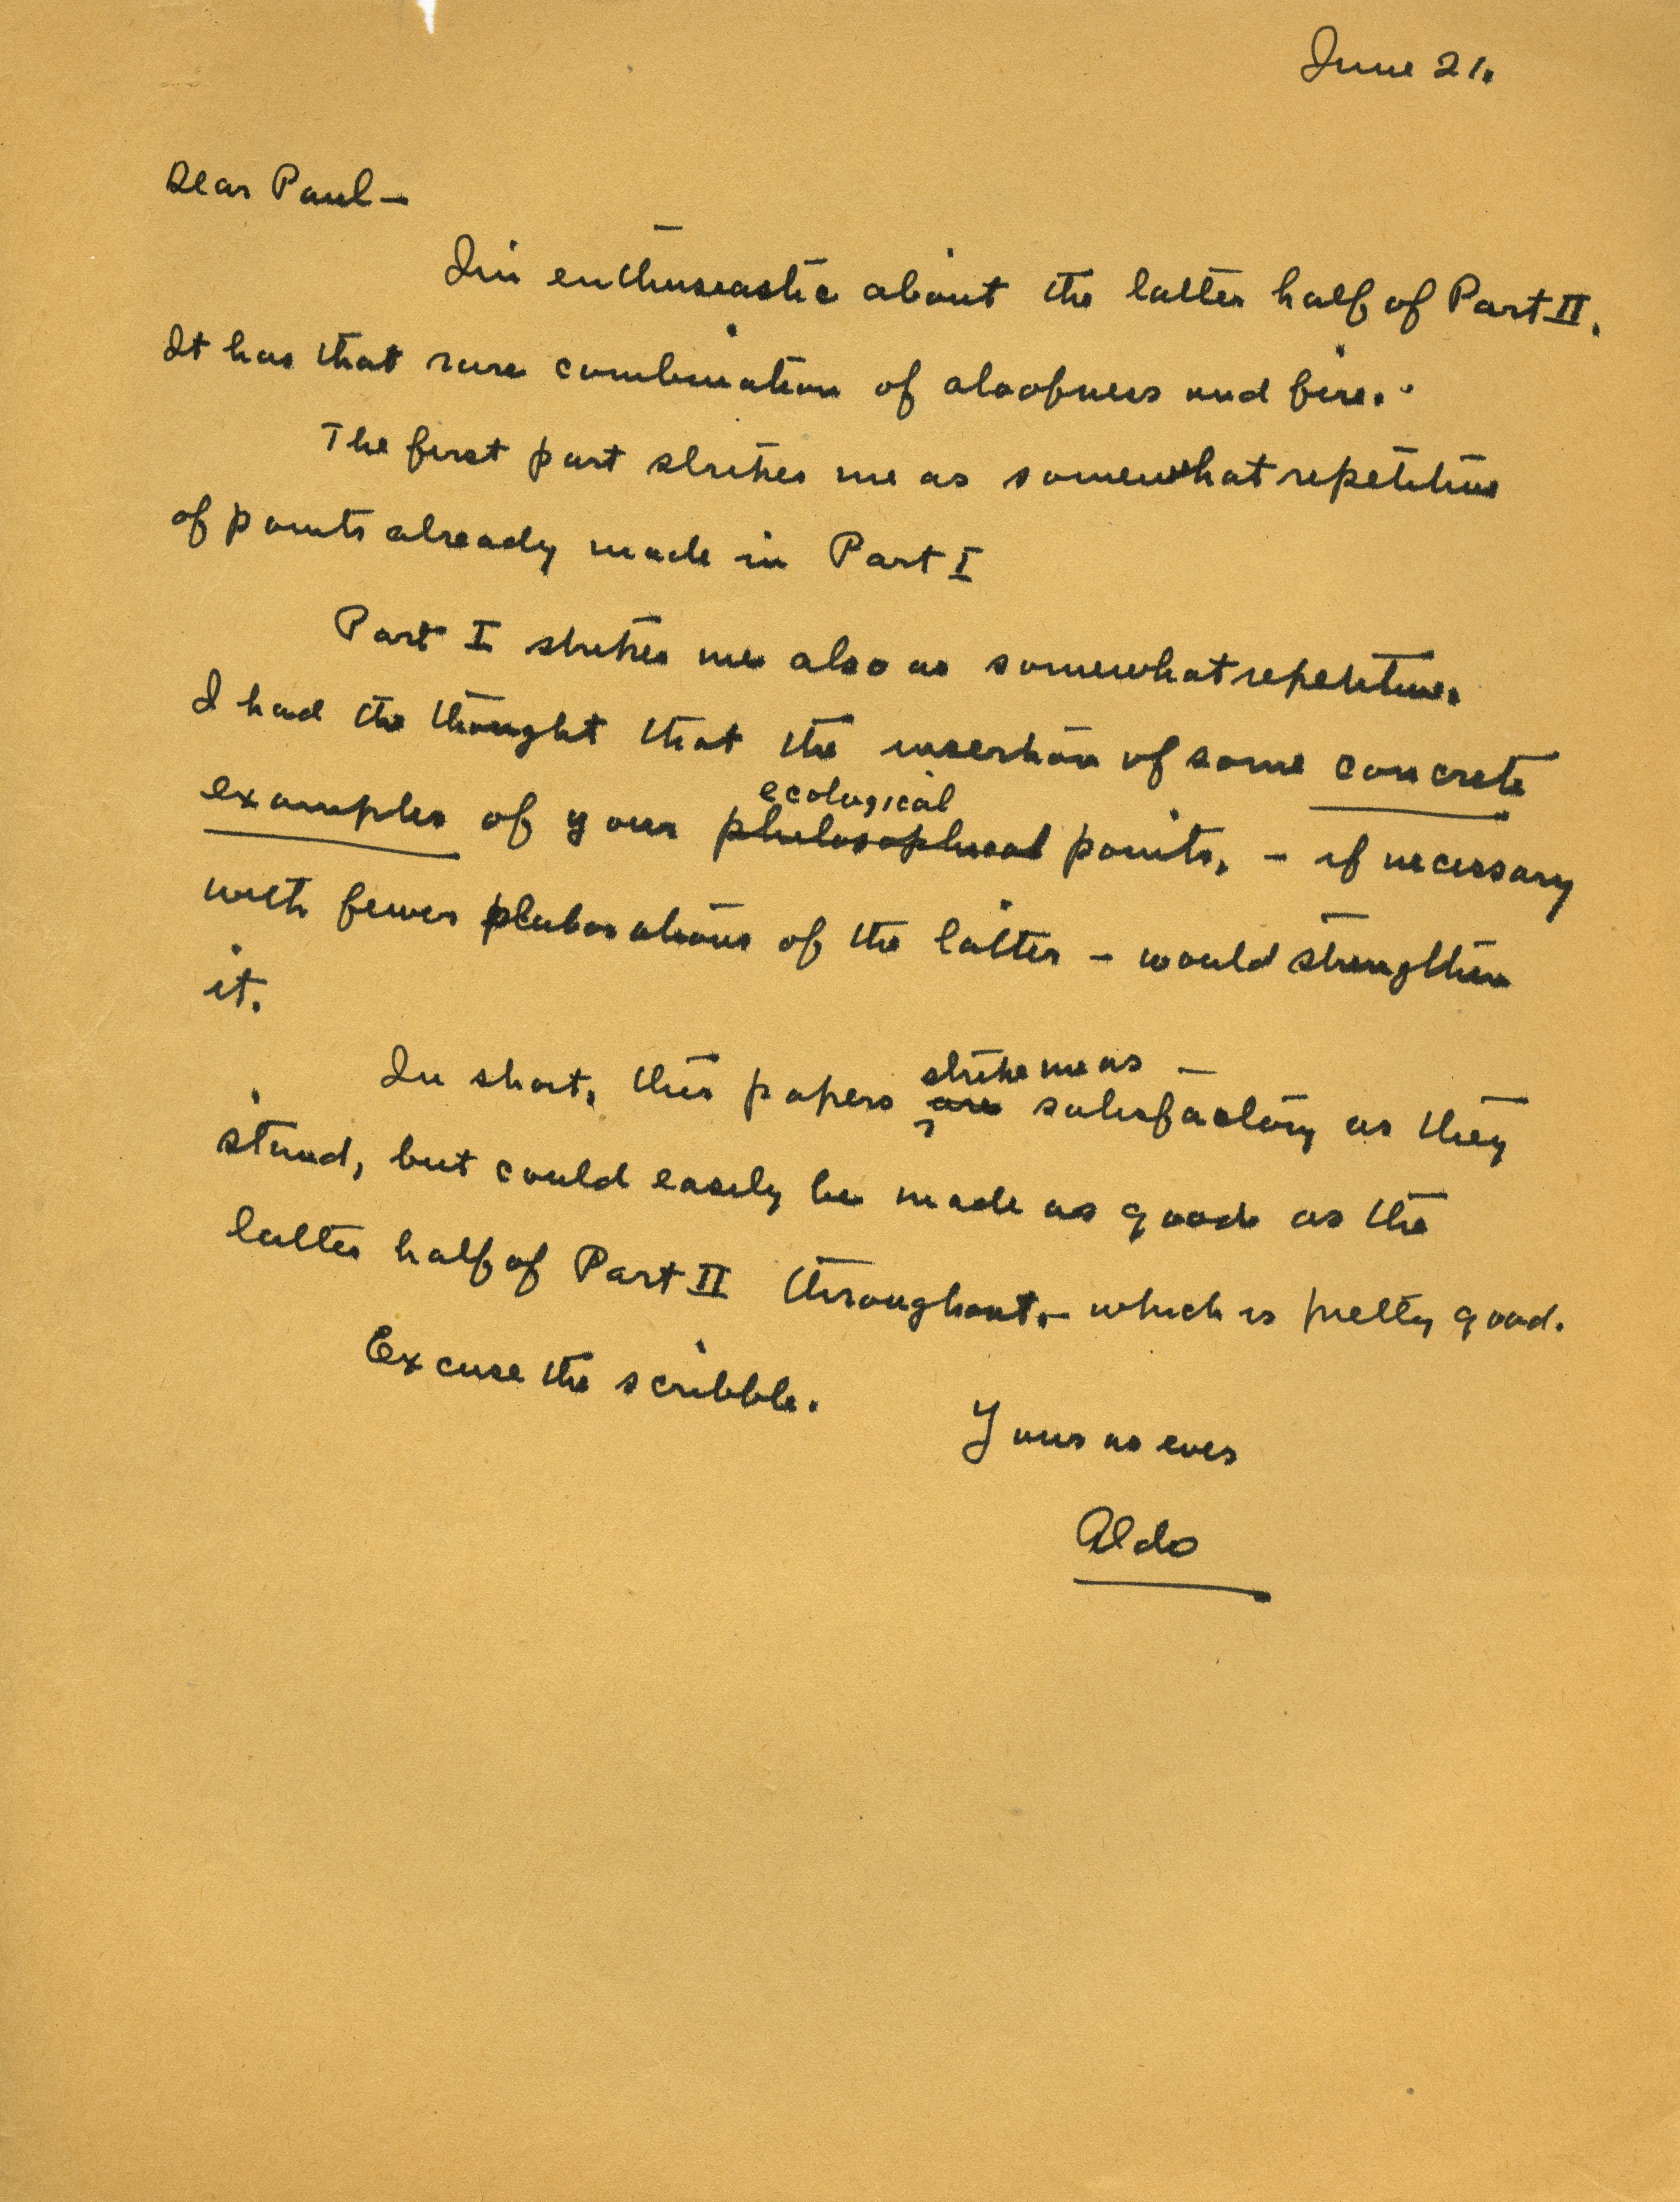 June 21.
Dear Paul —
I'm enthusiastic about the latter half of Part II.
It has that rare combination of aloofness and fire.
The first part strikes me as somewhat repetitive
of points already made in Part I
Part I strikes me also as somewhat repetitive.
I had the thought that the insertion of some concrete
ecological
examples of your philosophical points, — if necessary
with fewer elaborations of the latter — would strengthen
it.
strike me as —
In short, this papers are satisfactory as they
stand, but could easily be made as good as the
latter half of Part II throughout, — which is pretty good.
Excuse the scribble.
Yours as ever
Aldo